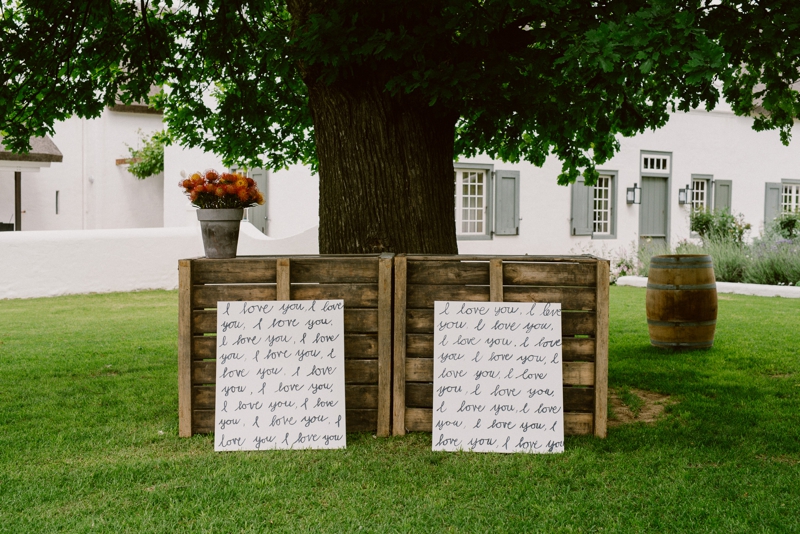 I love you, I love
you, I love you,
I love you, I love
you, I love you, I
love you, I love
you, I love you,
I love you, I love
you, I love you, I
love you, I love you
I love you, I love
you, I love you,
I love you, I love
you, I love you, I
love you, I love
you, I love you,
I love you, I love
you, I love you, I
love you, I love you